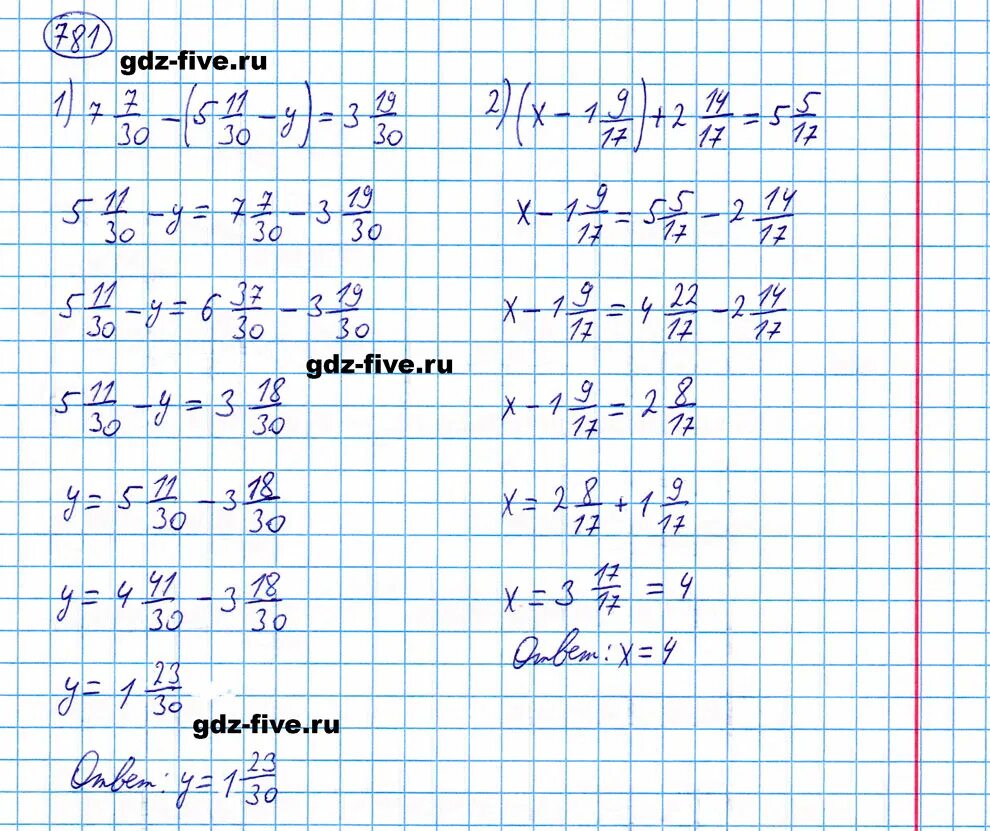 781
gdz-five.ru
1) 7 7/30 − (5 11/30 − y) = 3 19/30
5 11/30 − y = 7 7/30 − 3 19/30
5 11/30 − y = 6 37/30 − 3 19/30
gdz-five.ru
5 11/30 − y = 3 18/30
y = 5 11/30 − 3 18/30
y = 4 41/30 − 3 18/30
y = 1 23/30
gdz-five.ru
Ответ: y = 1 23/30
2) (x − 1 9/17) + 2 14/17 = 5 5/17
x − 1 9/17 = 5 5/17 − 2 14/17
x − 1 9/17 = 4 22/17 − 2 14/17
x − 1 9/17 = 2 8/17
x = 2 8/17 + 1 9/17
x = 3 17/17 = 4
Ответ: x = 4